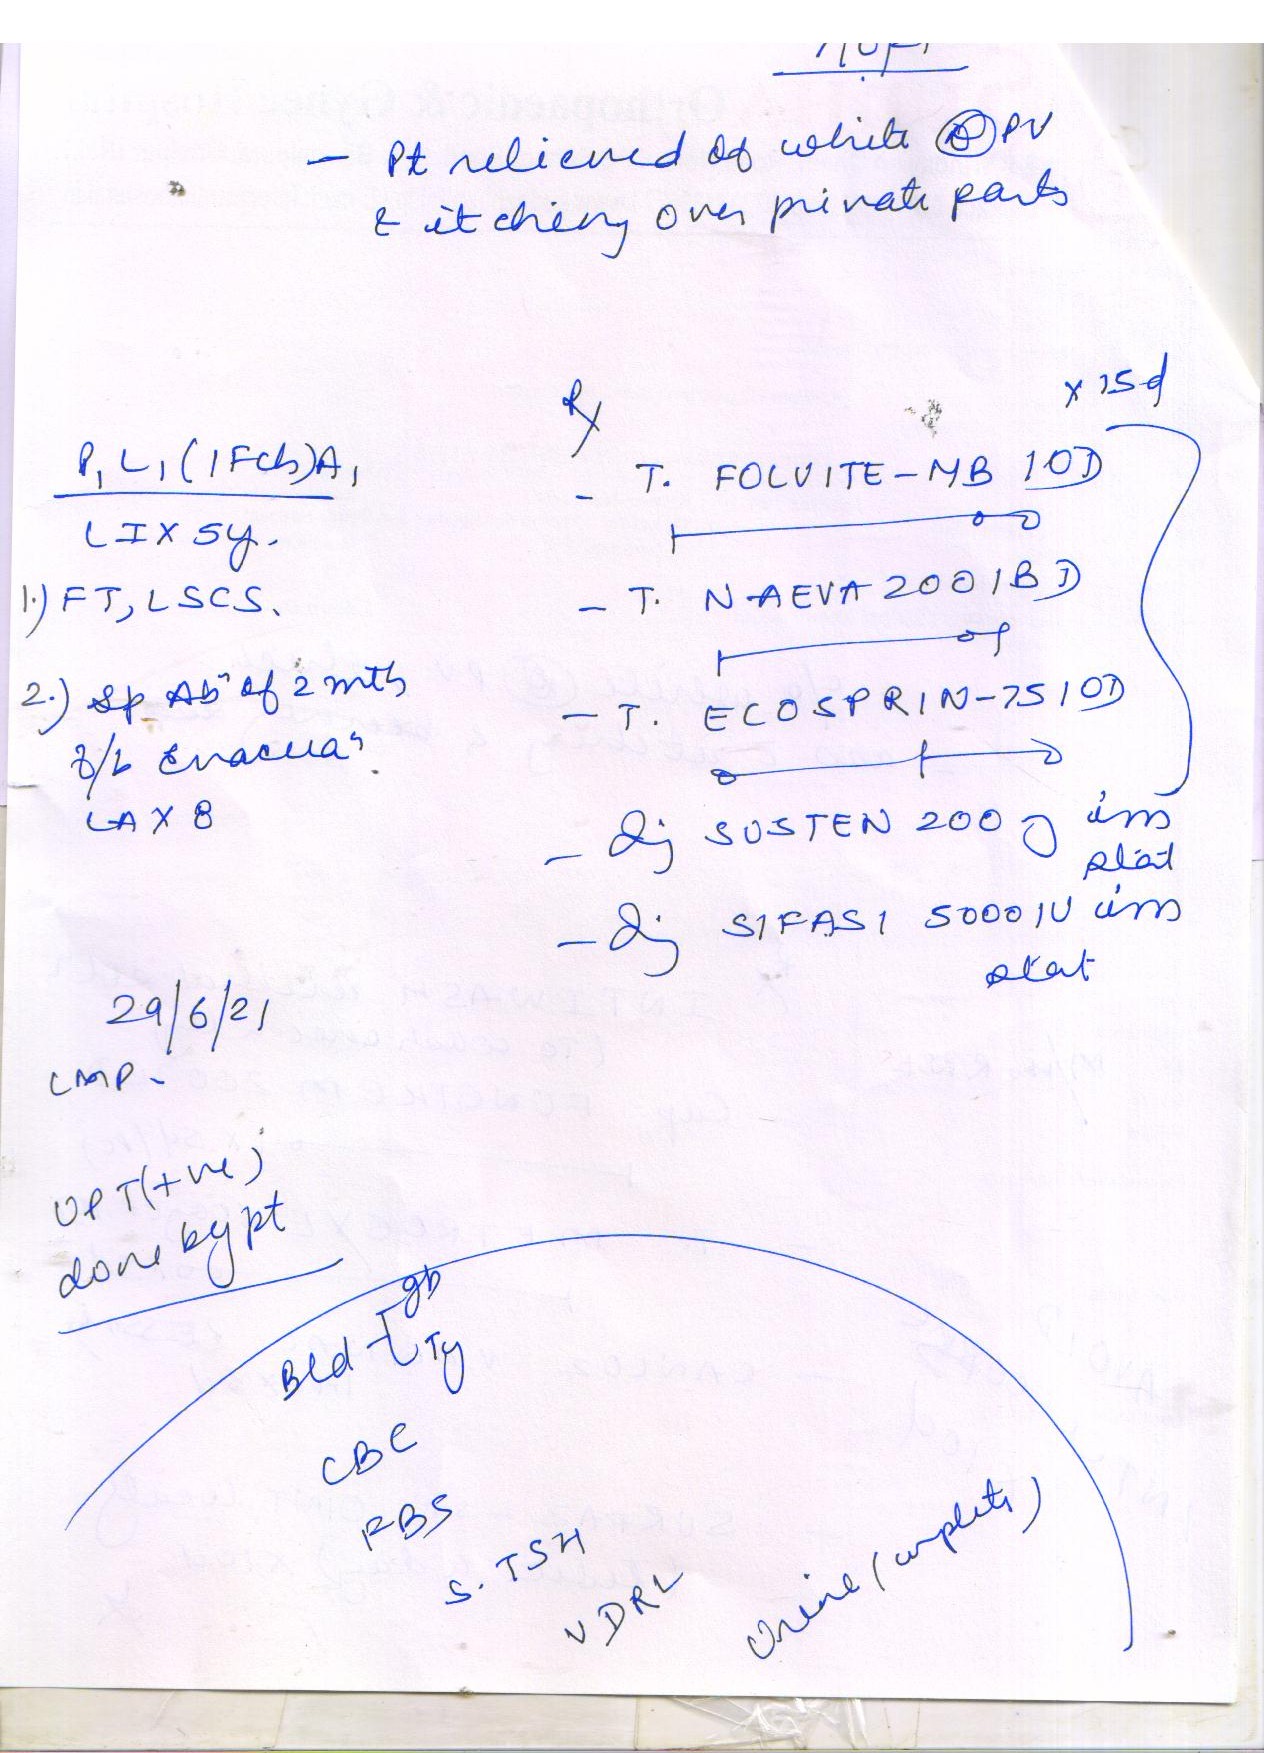 - Pt relieved of white Ⓓ PV
& itching over private parts
Rx
x 15d
P1 L1 (1 Fch) A1
LIX 5y.
1.) FT, LSCS.
2.) Sp Abⁿ of 2 mths
f/b Evacuaⁿ.
LAX 8
- T. FOLVITE-MB 1OD
- T. NAEVA 200 1BD
- T. ECOSPRIN-75 1OD
- Inj SUSTEN 200 im
stat
- Inj SIFASI 5000 IU im
stat
29/6/21
LMP -
UPT (+ve)
done by pt
Bld gb
Ty
CBC
RBS
S. TSH
VDRL
Urine (complete)